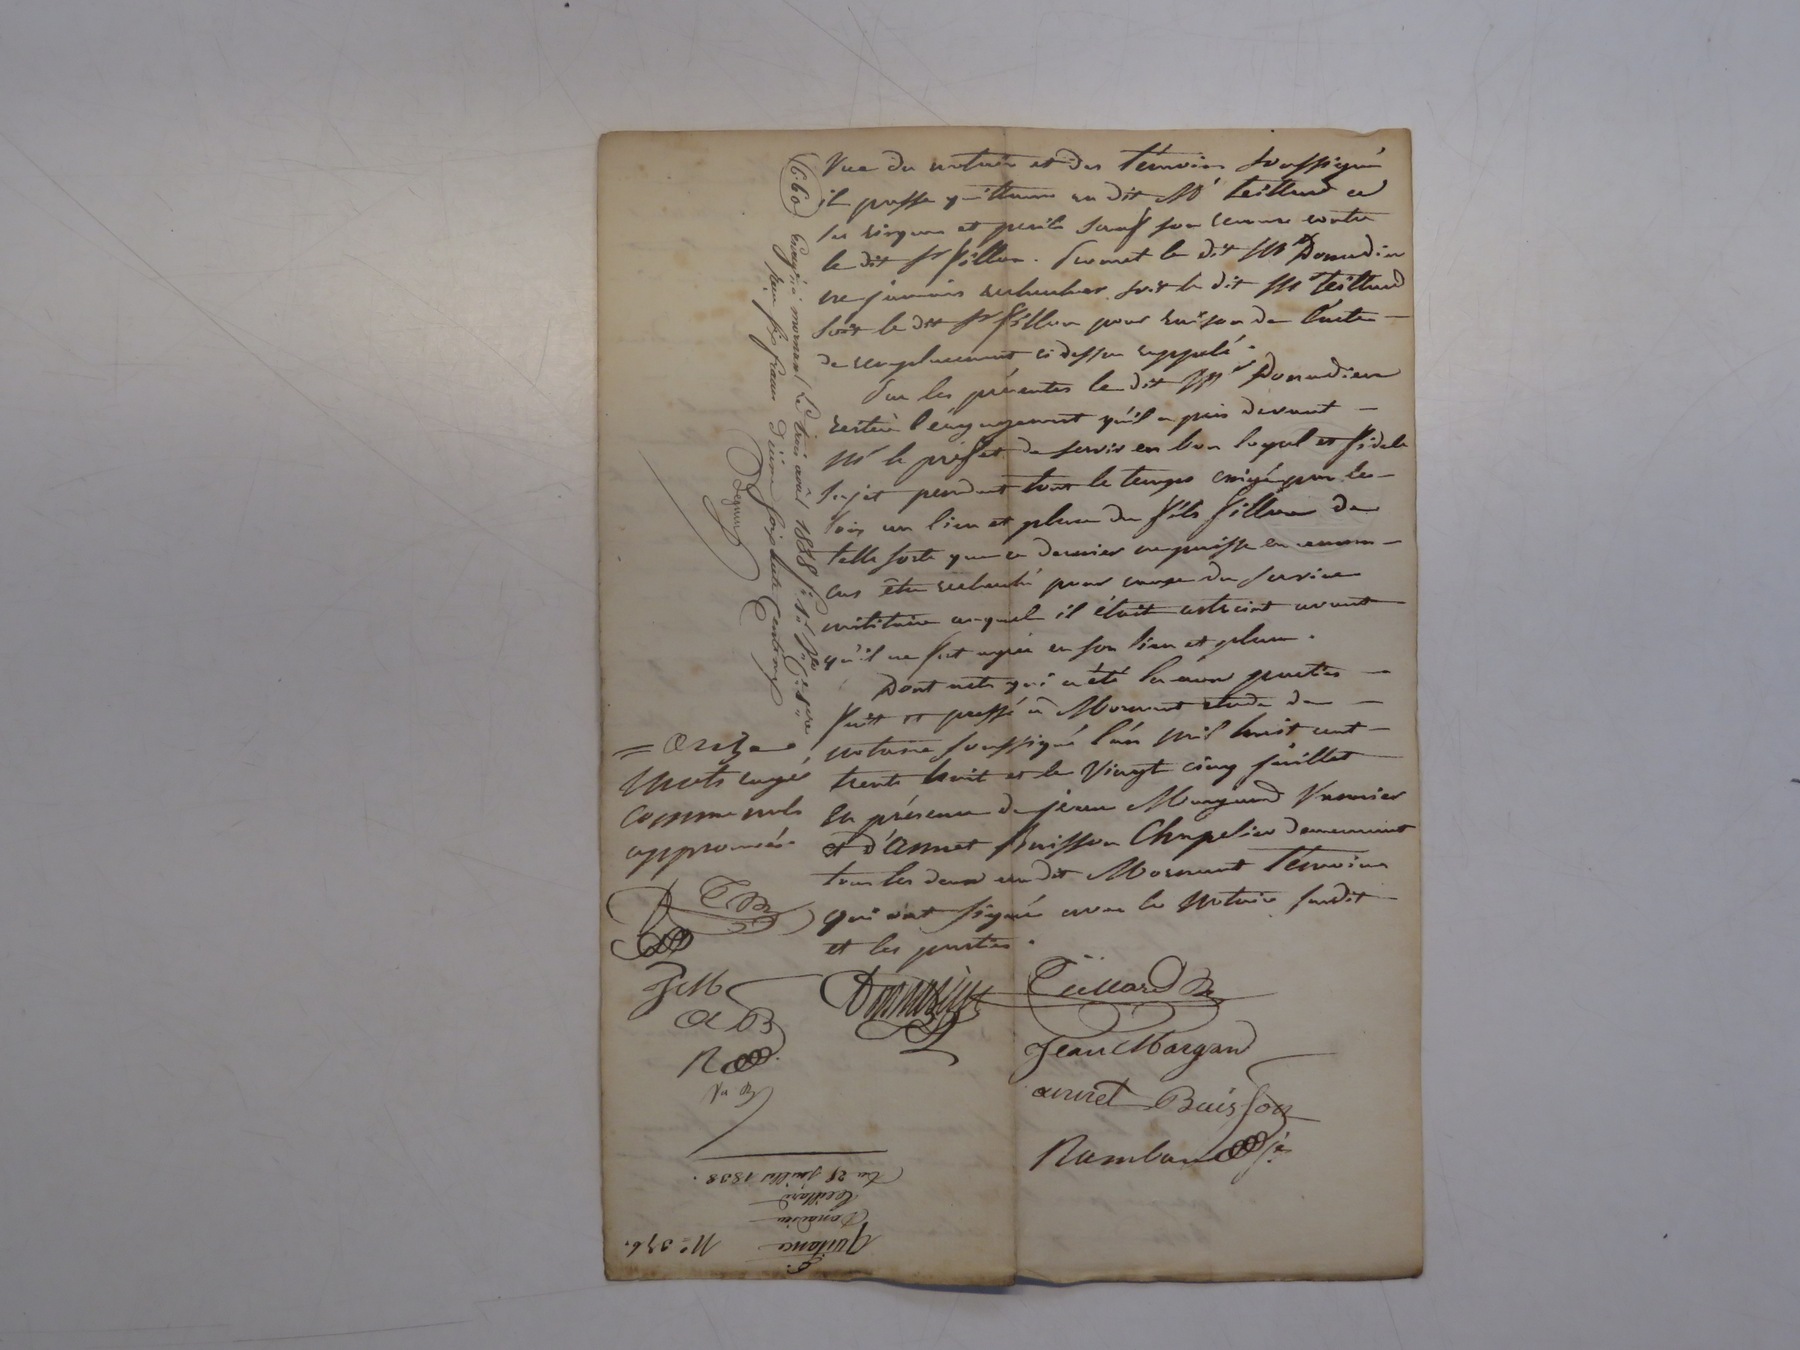 Vue du notaire et des témoins soussigné
il passe quittance au dit Mr teillard à
ses risques et perils sauf son recours contre
le dit Sr fillon. Promet le dit Mr Donadieu
ne jamais rechercher soit le dit Mr teillard
soit le dit Sr fillon pour raison de l'acte
de remplacement ci dessus rappelé.
Par les présentes le dit Mr Donadieu
réitère l'engagement qu'il a pris devant
Mr le préfet de servir en bon loyal et fidele
sujet pendant tout le temps exigé par les
lois au lieu et place du fils fillon de
telle sorte que ce dernier ne puisse en aucun
cas être recherché pour cause du service
militaire auquel il était astreint avant
qu'il ne fut agréé en son lieu et place.
Dont acte qui a été lu aux parties
fait et passé à Mornant étude du
notaire soussigné l'an mil huit cent
trente huit et le Vingt cinq juillet
En présence de jean Margand Vannier
et d'annet Buisson Chapelier demeurant
tous les deux au dit Mornant Témoins
qui ont signé avec le Notaire susdit
et les parties.
= onze
mots rayés
comme nuls
approuvés.
T B
JM
a B
R
Donnadieu
Teillard
Jean Margand
annet Buisson
Rambaud
(660) Enregistré à mornant Le trois août 1838
reçu francs dixième centimes
No 336.
Quitance
Donadieu
teillard
Du 25 juillet 1838.